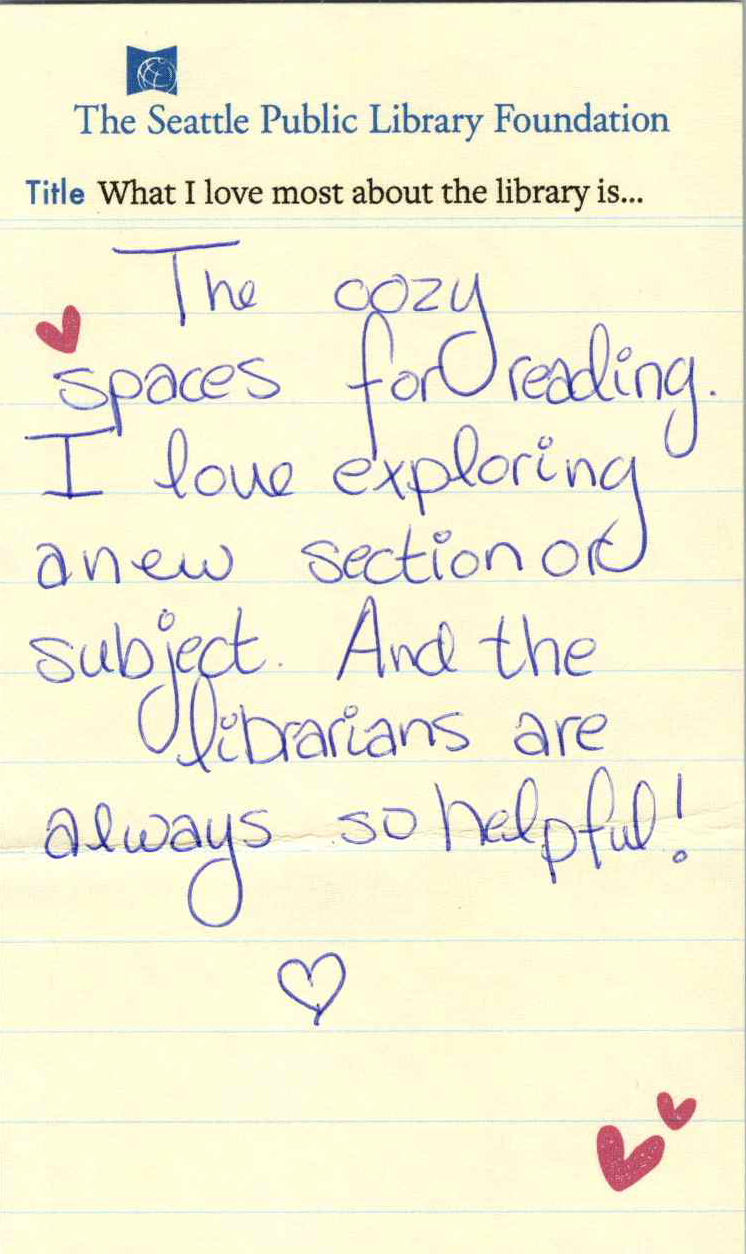 The Seattle Public Library Foundation
Title What I love most about the library is...
The cozy
spaces for reading.
I love exploring
a new section or
subject. And the
librarians are
always so helpful!